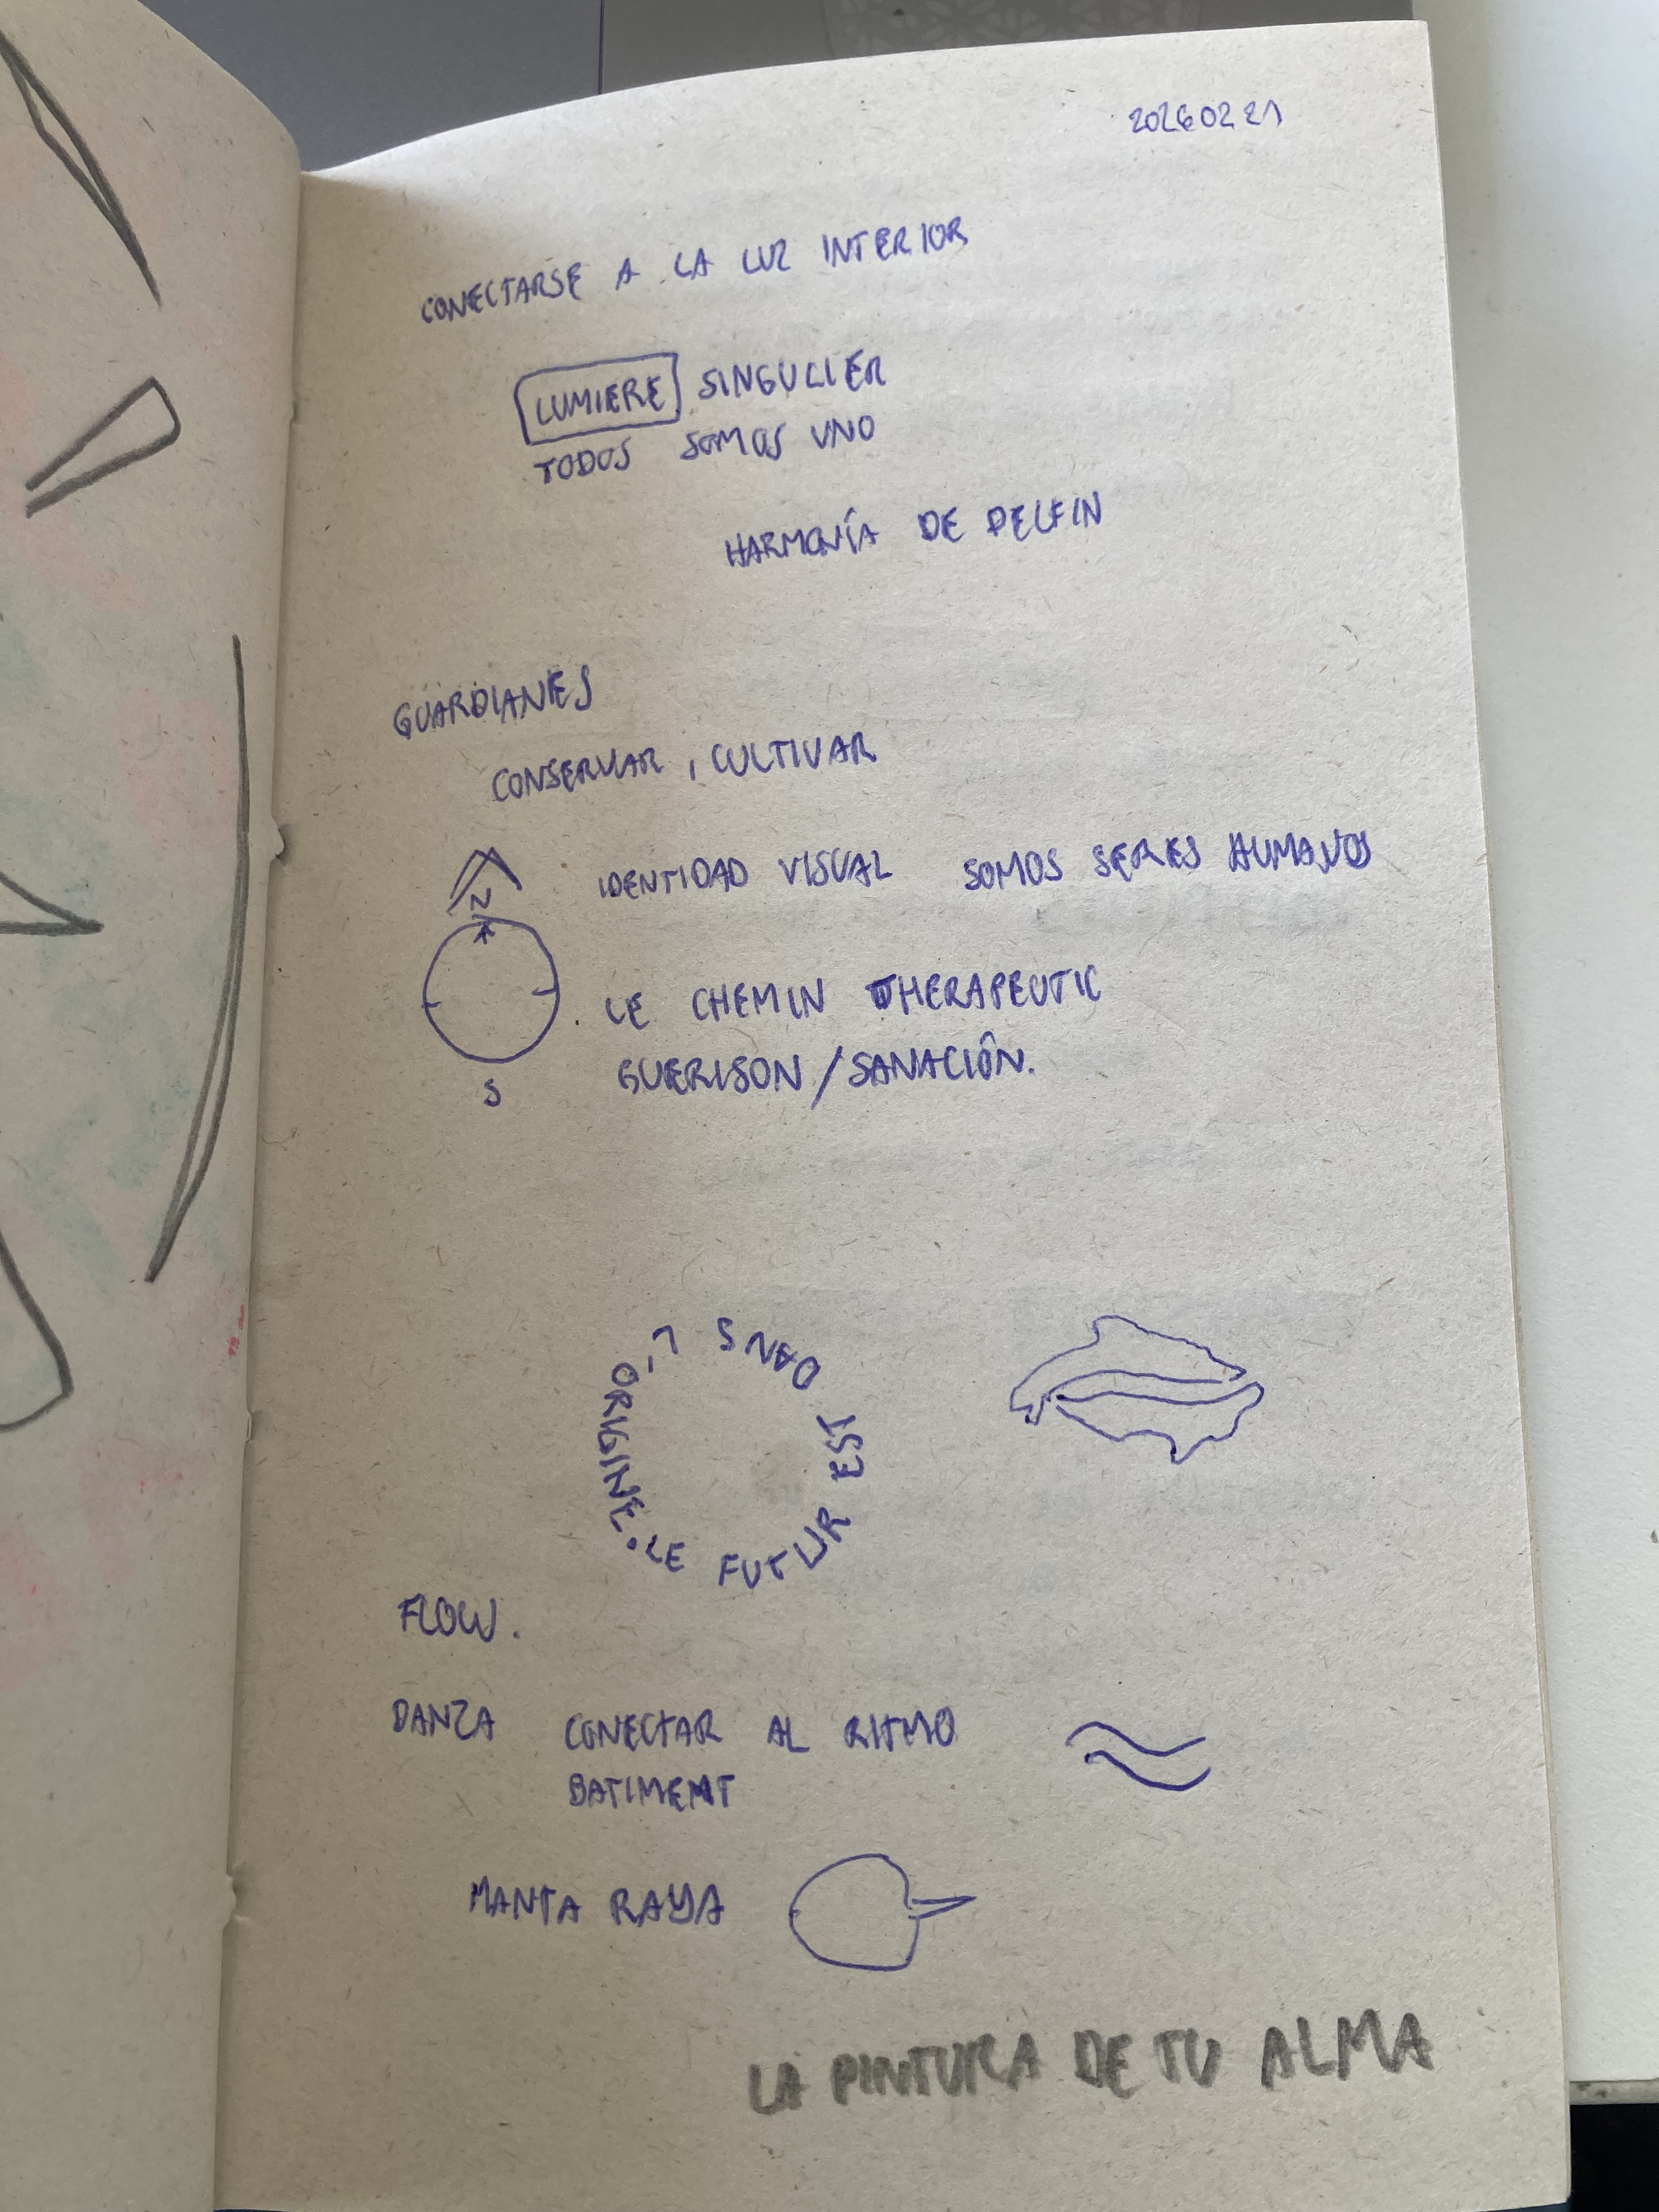 20260221
CONECTARSE A LA LUZ INTERIOR
LUMIERE SINGULIER
TODOS SOMOS UNO
HARMONÍA DE DELFIN
GUARDIANES
CONSERVAR, CULTIVAR
N
IDENTIDAD VISUAL SOMOS SERES HUMANOS
LE CHEMIN THERAPEUTIC
GUERISON/SANACIÓN.
S
LE FUTUR EST DANS L'ORIGINE.
FLOW.
DANZA CONECTAR AL RITMO
BATIMENT
MANTA RAYA
LA PINTURA DE TU ALMA